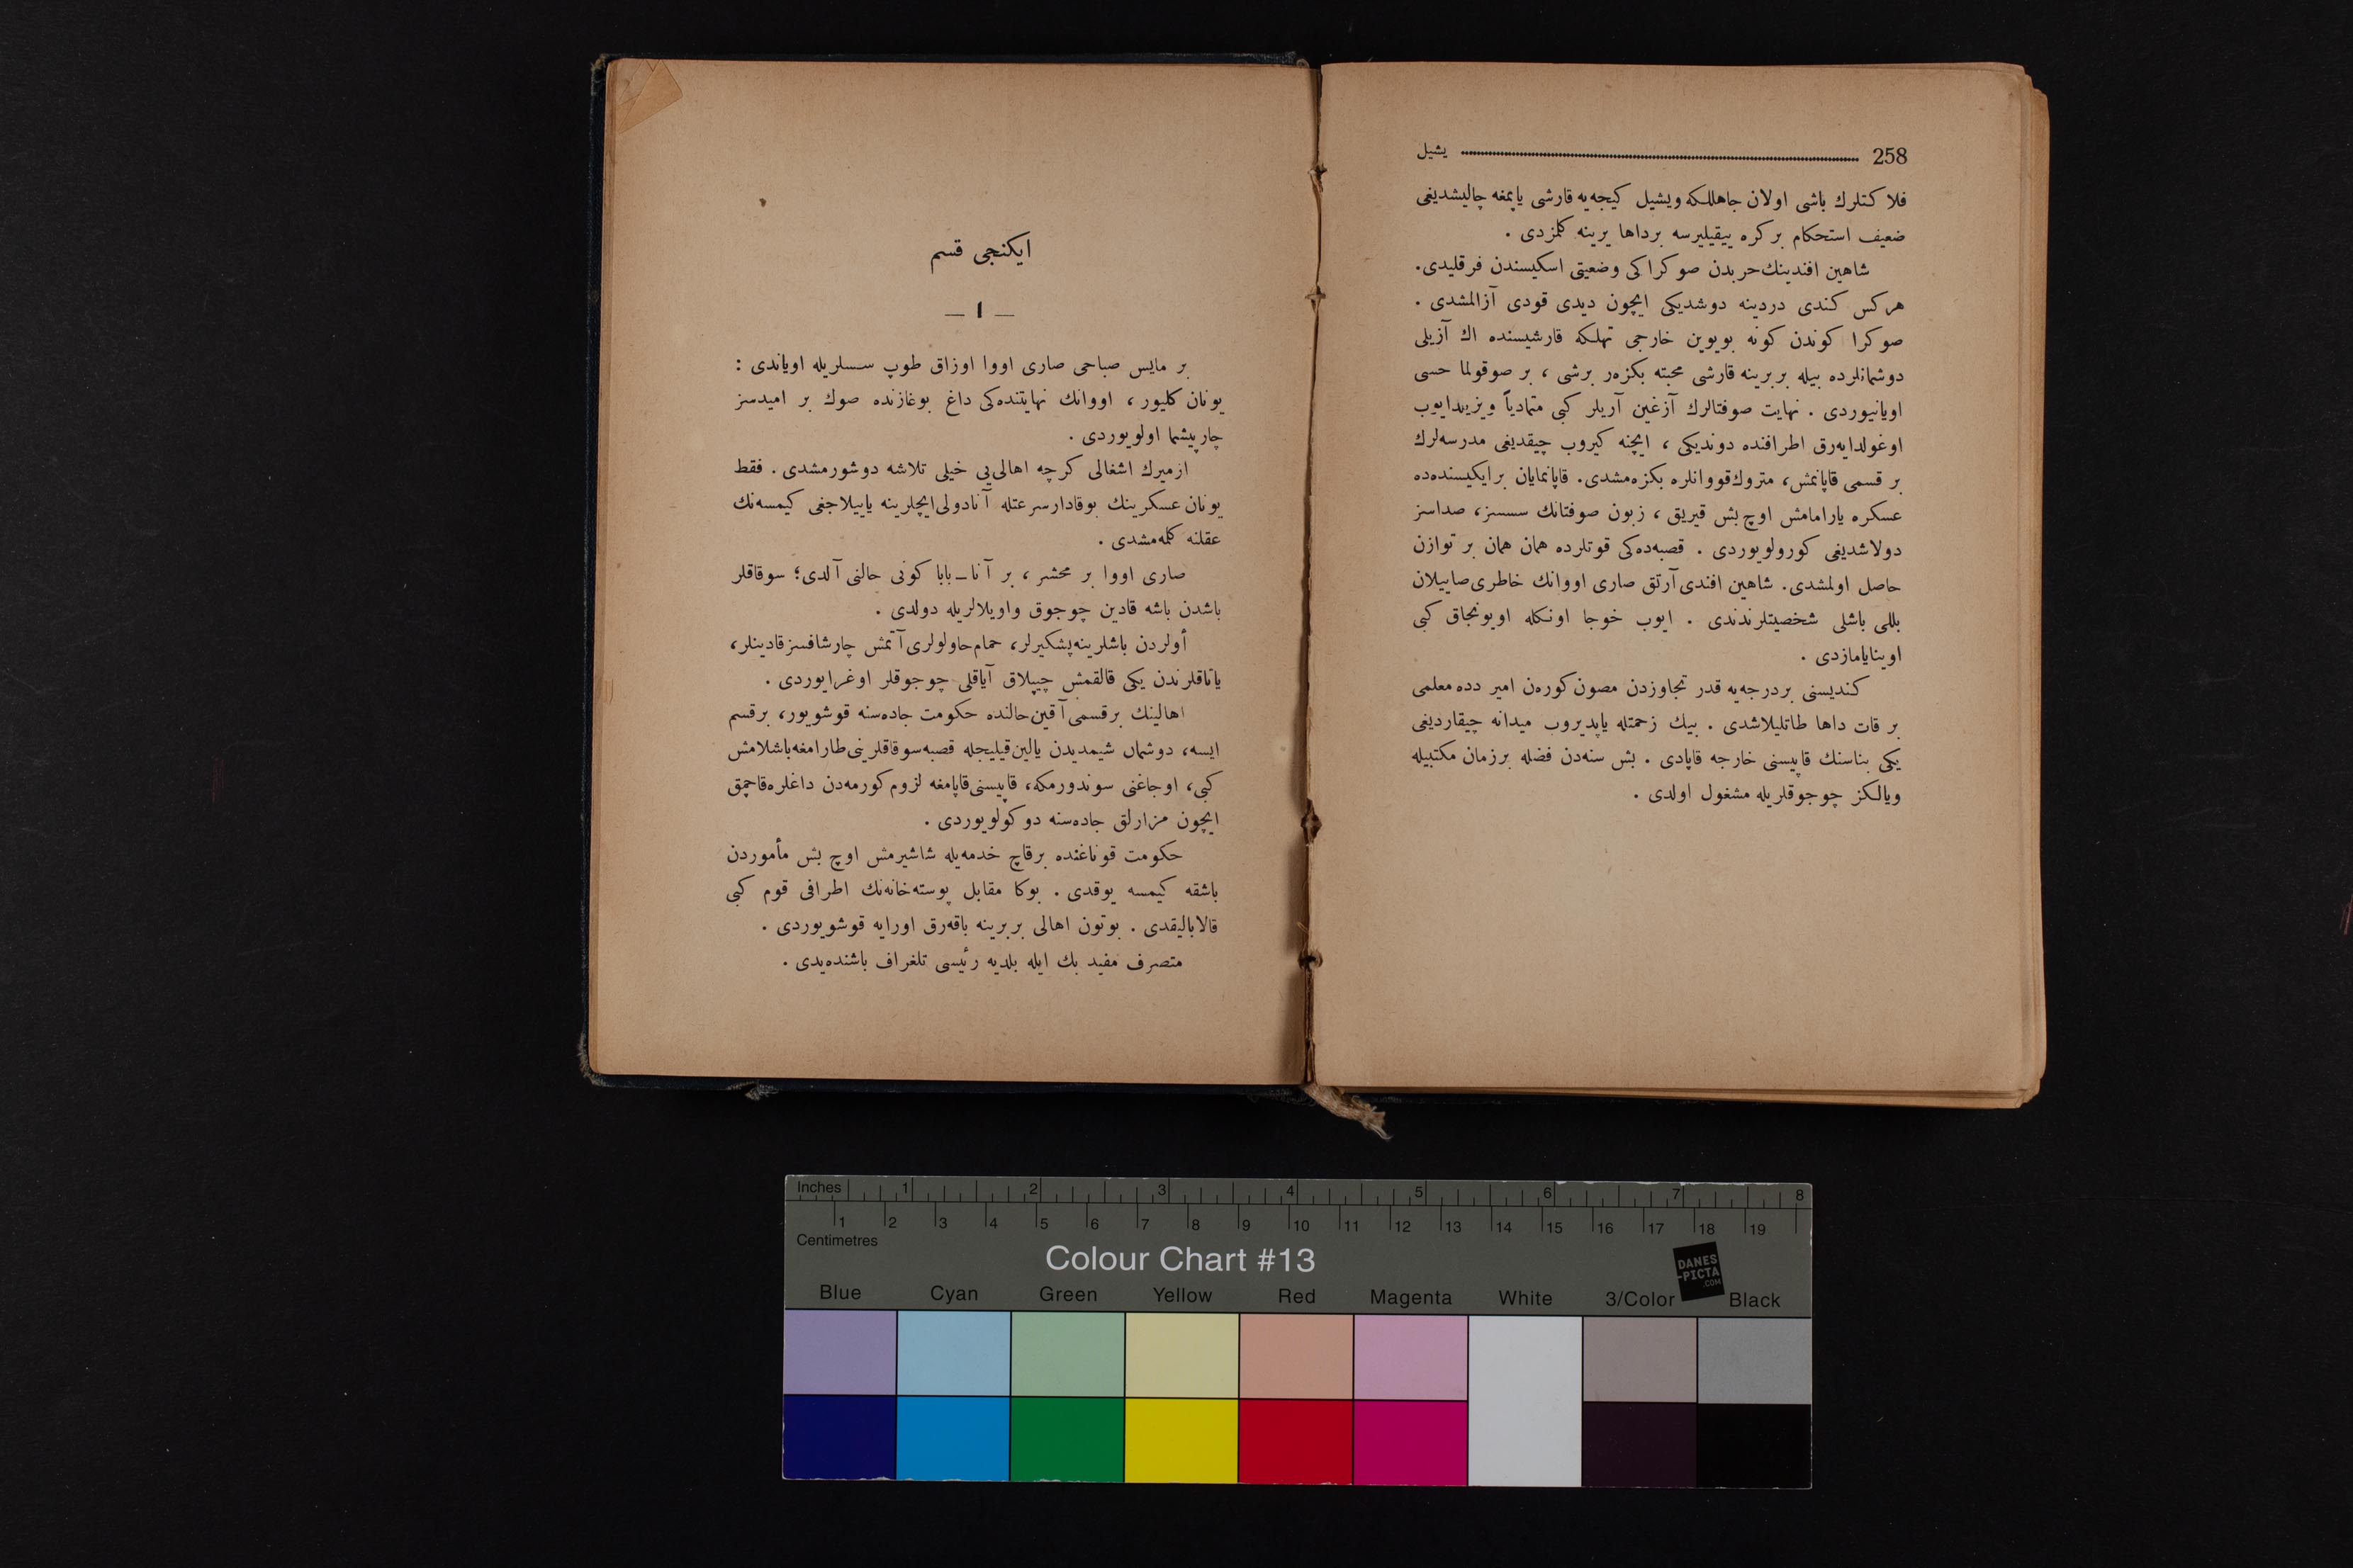 258 يشيل
فلاكتلرك باشى اولان جاهللكه ويشيل كيجه‌يه قارشى ياپمغه چاليشديغى
ضعيف استحكام بركره ييقيليرسه برداها يرينه كلمزدى .
شاهين افندينك حربدن صوكراكى وضعيتى اسكيسندن فرقليدى.
هركس كندى دردينه دوشديكى ايچون ديدى قودى آزالمشدى .
صوكرا كوندن كونه بويوين خارجى تهلكه قارشيسنده اك آزيلى
دوشمانلرده بيله بربرينه قارشى محبته بكزه‌ر برشى ، بر صوقولما حسى
اويانيوردى . نهايت صوفتالرك آزغين آريلر كبى متماديآ ويزيلدايوب
اوغولدايه‌رق اطرافنده دونديكى ، ايچنه كيروب چيقديغى مدرسه‌لرك
بر قسمى قاپانمش، متروك قووانلره بكزه‌مشدى. قاپانمايان برايكيسنده‌ده
عسكره يارامامش اوچ بش قيريق ، زبون صوفتانك سسسز، صداسز
دولاشديغى كورولويوردى . قصبه‌ده‌كى قوتلرده همان همان بر توازن
حاصل اولمشدى. شاهين افندى آرتق صارى اووانك خاطرى صاييلان
بللى باشلى شخصيتلرندندى . ايوب خوجا اونكله اويونجاق كبى
اوينايامازدى .
كنديسنى بردرجه‌يه قدر تجاوزدن مصون كوره‌ن امير دده معلمى
بر قات داها طاتليلاشدى . بيك زحمتله ياپديروب ميدانه چيقارديغى
يكى بناسنك قاپيسنى خارجه قاپادى . بش سنه‌دن فضله برزمان مكتبيله
ويالكز چوجوقلريله مشغول اولدى .
ايكنجى قسم
— ١ —
بر مايس صباحى صارى اووا اوزاق طوپ سسلريله اوياندى :
يونان كليور ، اووانك نهايتنده‌كى داغ بوغازنده صوك بر اميدسز
چارپيشما اولويوردى .
ازميرك اشغالى كرچه اهالى‌يى خيلى تلاشه دوشورمشدى . فقط
يونان عسكرينك بوقادار سرعتله آنادولى ايچلرينه ياييلاجغى كيمسه‌نك
عقلنه كلمه‌مشدى .
صارى اووا بر محشر ، بر آنا ـ بابا كونى حالنى آلدى؛ سوقاقلر
باشدن باشه قادين چوجوق واويلالريله دولدى .
أولردن باشلرينه پشكيرلر، حمام حاولولرى آتمش چارشافسز قادينلر،
ياتاقلرندن يكى قالقمش چيپلاق آياقلى چوجوقلر اوغرايوردى .
اهالينك برقسمى آقين حالنده حكومت جاده‌سنه قوشويور، برقسم
ايسه، دوشمان شيمديدن يالين قيليجله قصبه سوقاقلرينى طارامغه باشلامش
كبى، اوجاغنى سوندورمكه، قاپيسنى قاپامغه لزوم كورمه‌دن داغلره قاچمق
ايچون مزارلق جاده‌سنه دوكولويوردى .
حكومت قوناغنده برقاچ خدمه‌يله شاشيرمش اوچ بش مأموردن
باشقه كيمسه يوقدى . بوكا مقابل پوسته‌خانه‌نك اطرافى قوم كبى
قالاباليقدى . بوتون اهالى بربرينه باقه‌رق اورايه قوشويوردى .
متصرف مفيد بك ايله بلديه رئيسى تلغراف باشنده‌يدى .
Inches 1 2 3 4 5 6 7 8
1 2 3 4 5 6 7 8 9 10 11 12 13 14 15 16 17 18 19
Centimetres
Colour Chart #13
DANES
-PICTA
.COM
Blue Cyan Green Yellow Red Magenta White 3/Color Black